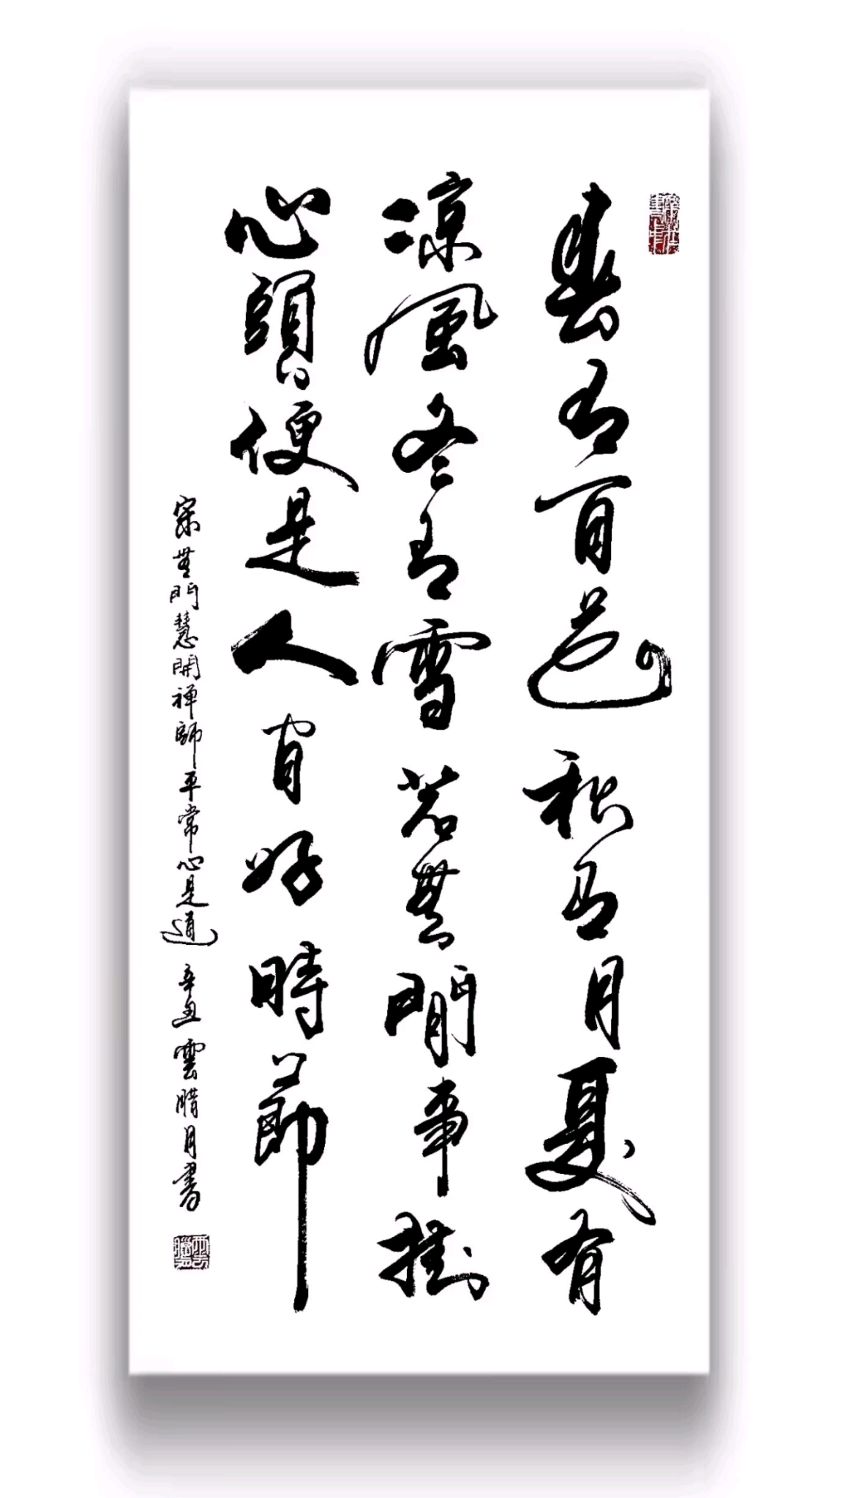 春有百花秋有月夏有
涼風冬有雪若無閒事掛
心頭便是人間好時節
宋無門慧開禪師平常心是道 辛丑 雲腊月書